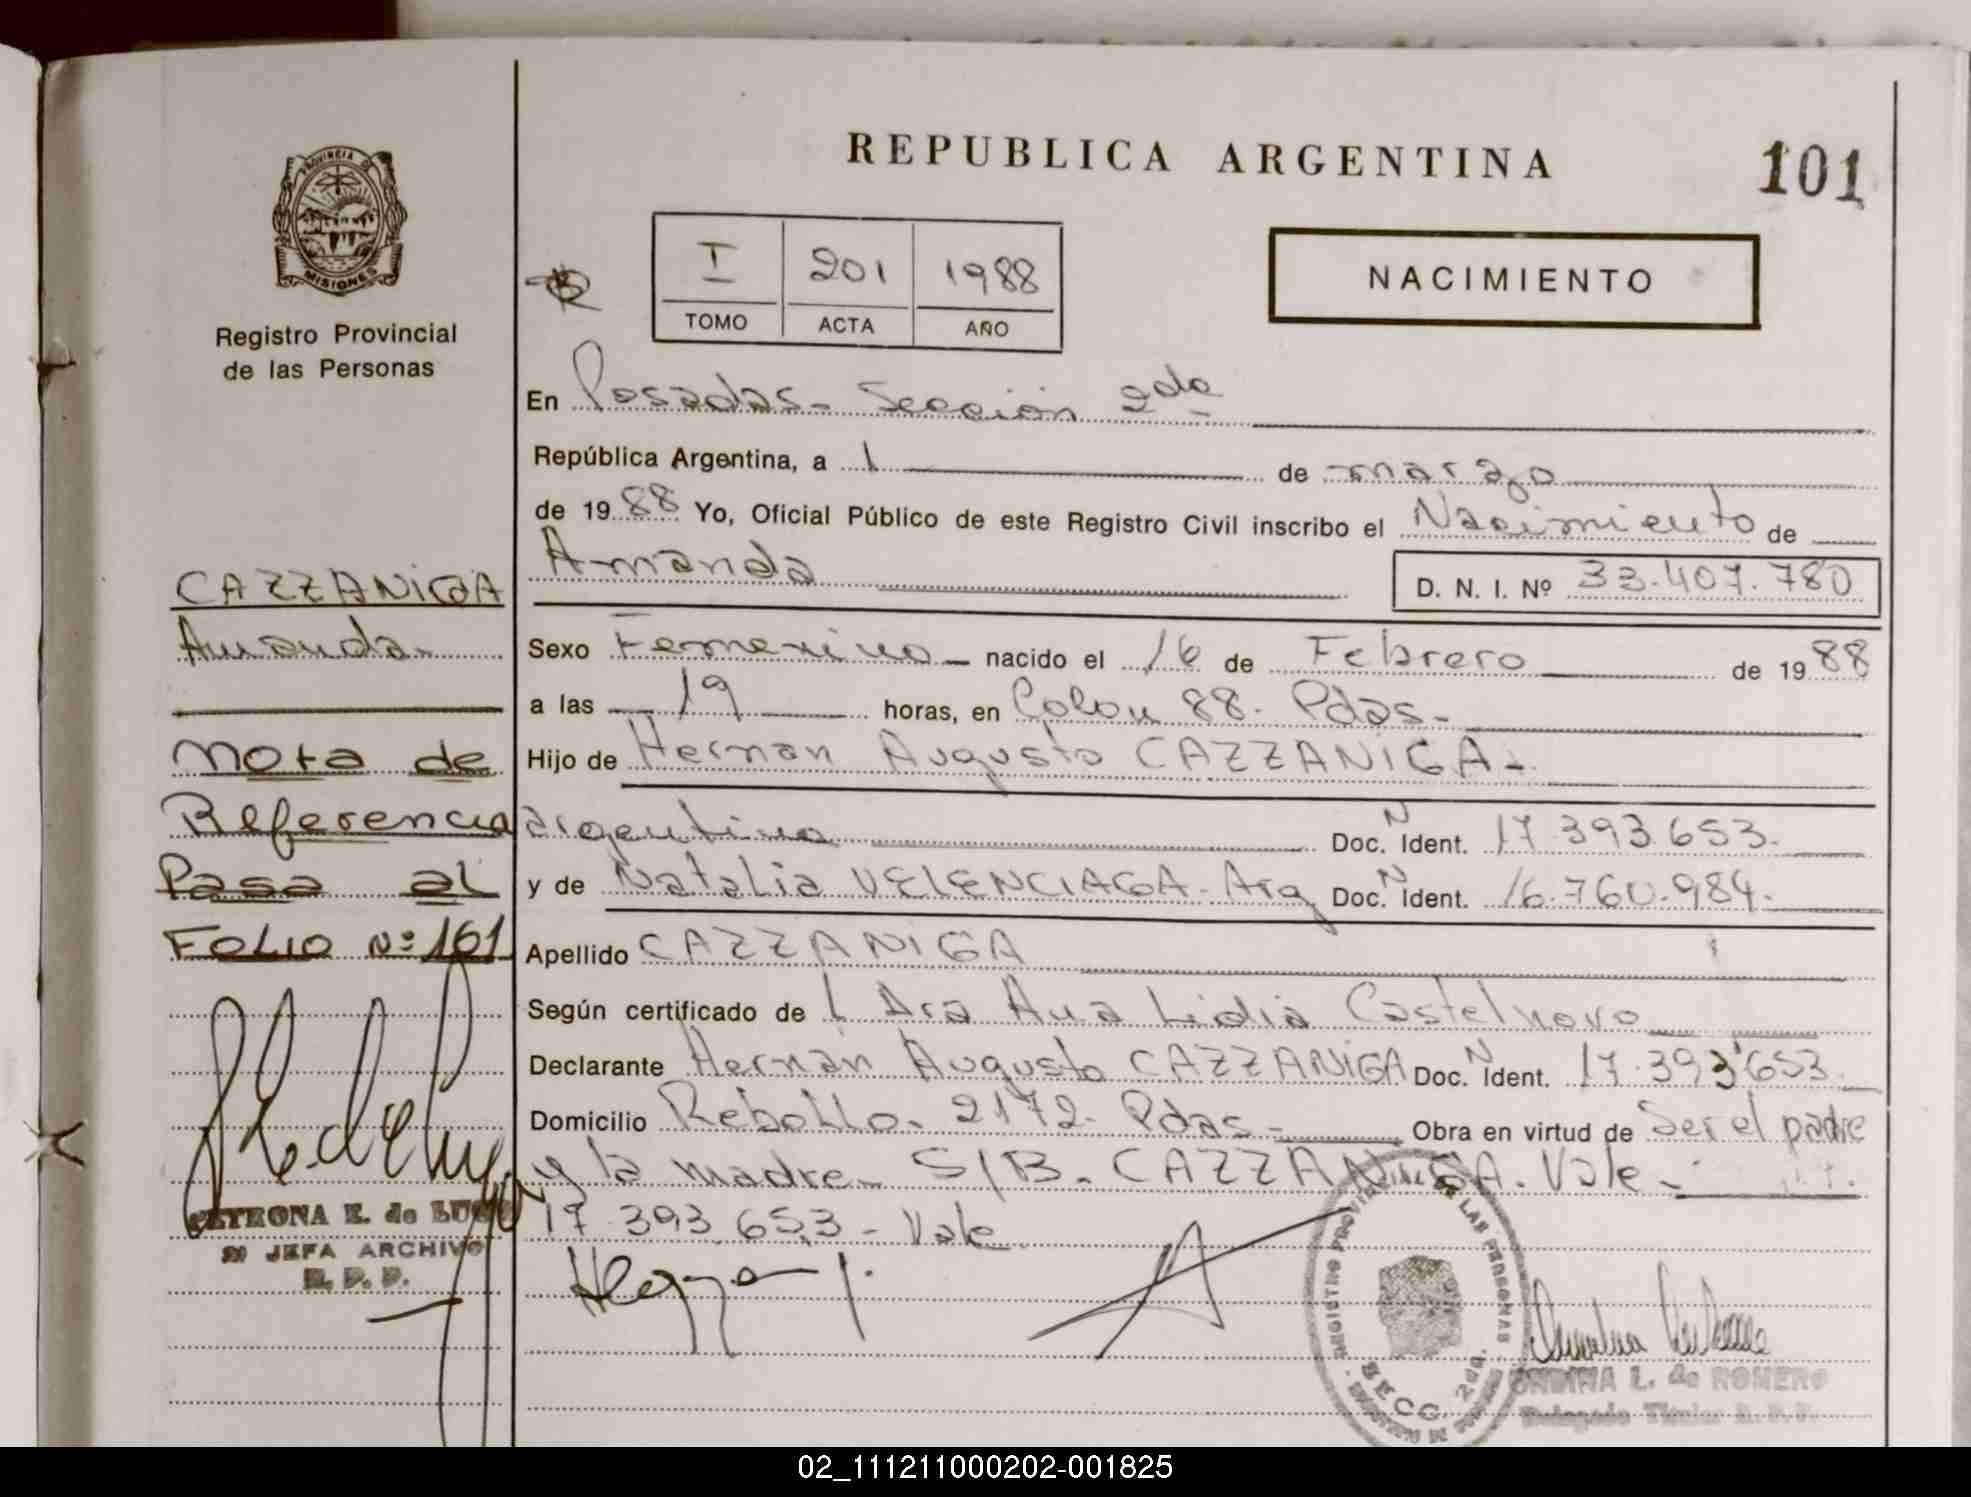 REPUBLICA ARGENTINA
101
PROVINCIA DE
MISIONES
Registro Provincial
de las Personas
I 201 1988
TOMO ACTA AÑO
NACIMIENTO
En Posadas - Sección 2da
República Argentina, a 1 de marzo
de 1988 Yo, Oficial Público de este Registro Civil inscribo el Nacimiento de
Amanda
D. N. I. Nº 33.407.780
Sexo Femenino nacido el 16 de Febrero de 1988
a las 19 horas, en Colon 88. Pdas-
Hijo de Hernan Augusto CAZZANIGA-
argentino Doc. N Ident. 17.393.653.
y de Natalia VELENCIAGA. Arg Doc. N Ident. 16.760.984.
Apellido CAZZANIGA
Según certificado de Dra Ana Lidia Castelnovo
Declarante Hernán Augusto CAZZANIGA Doc. N Ident. 17.393.653
Domicilio Rebollo. 2172. Pdas- Obra en virtud de Ser el padre
y la madre- S/B. CAZZANIGA. Vale-
17.393.653- Vale
CAZZANIGA
Amanda-
Nota de
Referencia
Pasa al
FOLIO Nº 161
PETRONA E. de LUGO
JEFA ARCHIVO
R. P. P.
REGISTRO PROVINCIAL DE LAS PERSONAS
SECC. 2da.
ONDINA L. de ROMERO
Delegada Titular R. P. P.
02_111211000202-001825